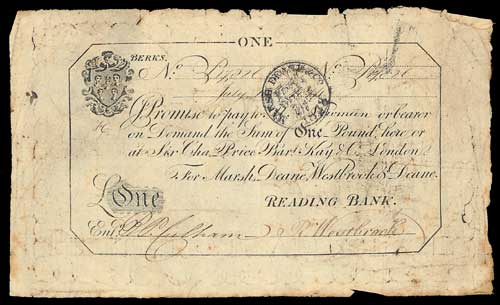 ONE
BERKS.
No. No.
I Promise to pay to or bearer
on Demand the Sum of One Pound, here or
at Sir Cha. Price Bart. Kay & Co. London
For Marsh, Deane, Westbrook & Deane.
£One READING BANK.
Entd. Westbrook